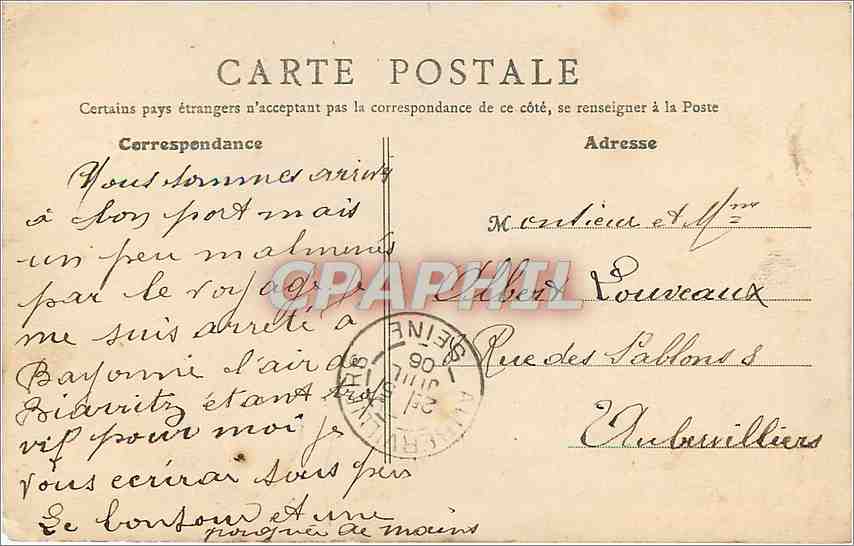 CARTE POSTALE
Certains pays étrangers n'acceptant pas la correspondance de ce côté, se renseigner à la Poste
Correspondance
Nous sommes arrivés
à bon port mais
un peu malmenés
par le voyage je
me suis arreté à
Bayonne l'air de
Biarritz étant trop
vif pour moi je
vous ecrirai sous peu
Le bonjour et une
poignée de mains
Adresse
Monsieur et Mme
Albert Louveaux
Rue des Sablons 8
Aubervilliers
CPAPHIL
AUBERVILLIERS
SEINE
JUIL
06